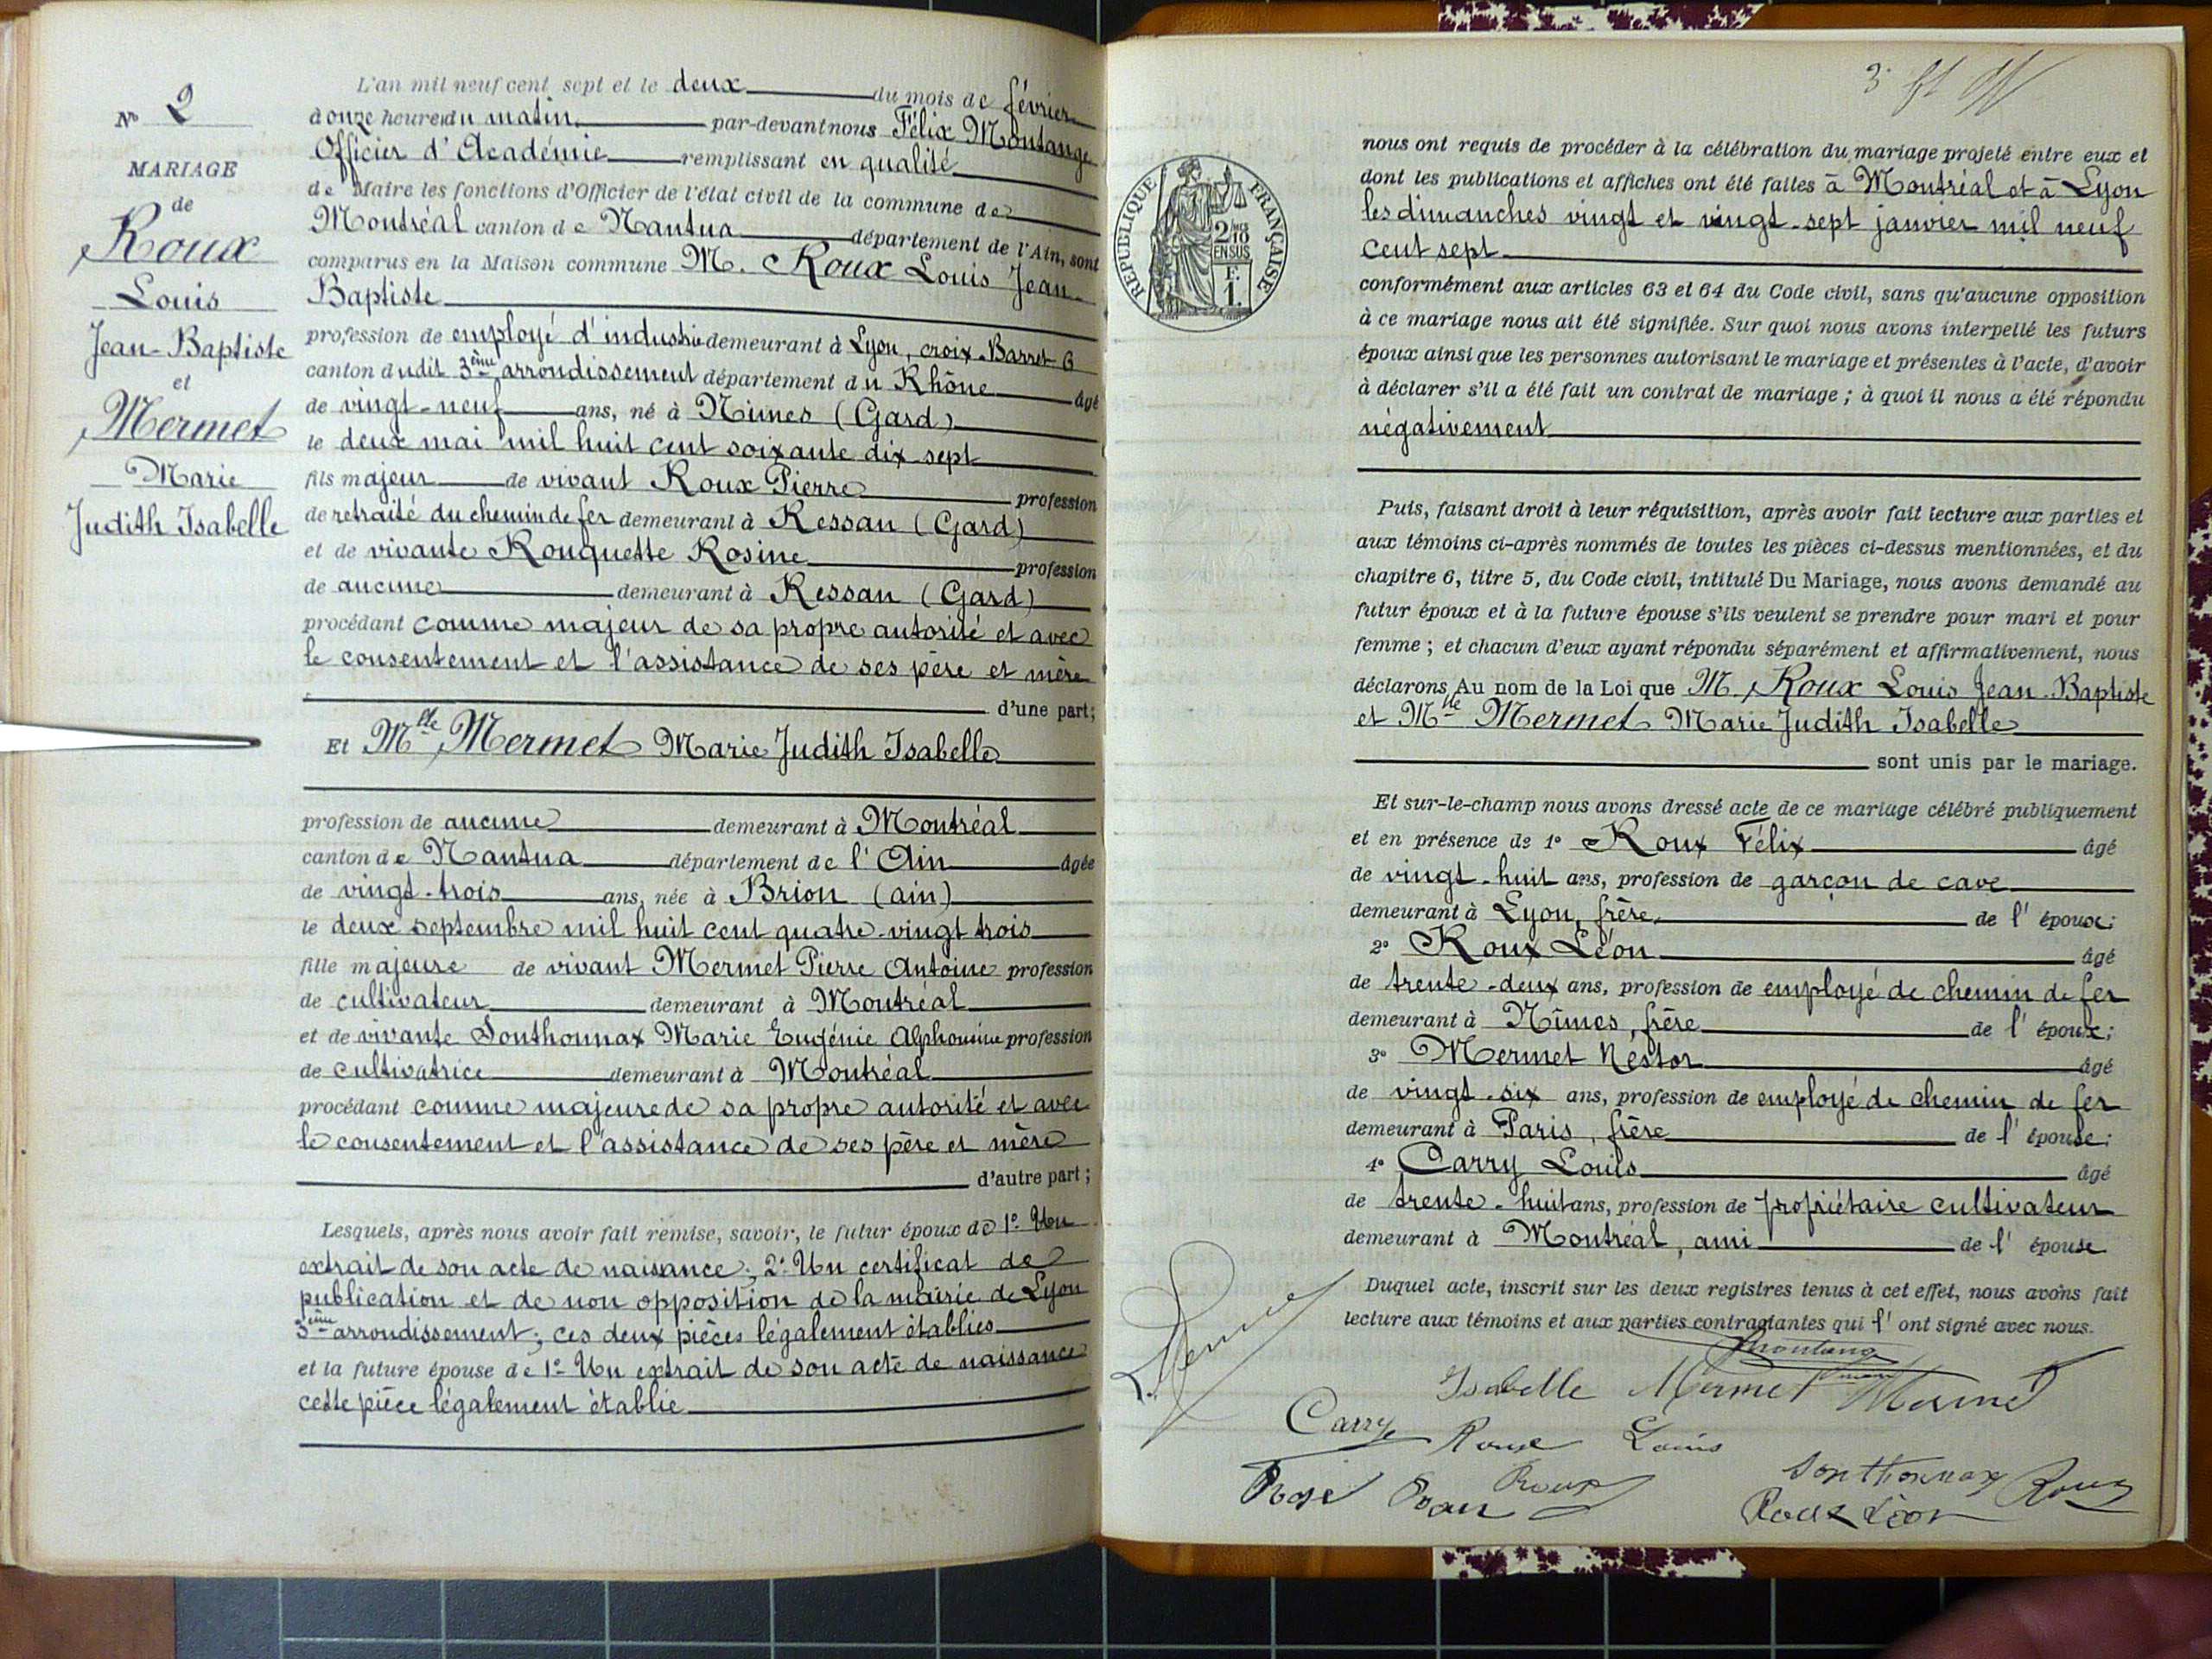 N° 2
MARIAGE
de
Roux
Louis
Jean-Baptiste
et
Mermet
Marie
Judith Isabelle
L'an mil neuf cent sept et le deux du mois de février
à onze heures du matin par-devant nous Félix Montange
Officier d'Académie remplissant en qualité
de Maire les fonctions d'Officier de l'état civil de la commune de
Montréal canton de Nantua département de l'Ain, sont
comparus en la Maison commune M. Roux Louis Jean-
Baptiste
profession de employé d'industrie demeurant à Lyon, croix-Barret 6
canton dudit 3ème arrondissement département du Rhône âgé
de vingt-neuf ans, né à Nimes (Gard)
le deux mai mil huit cent soixante dix-sept
fils majeur de vivant Roux Pierre profession
de retraité du chemin de fer demeurant à Ressan (Gard)
et de vivante Rouquette Rosine profession
de aucune demeurant à Ressan (Gard)
procédant comme majeur de sa propre autorité et avec
le consentement et l'assistance de ses père et mère
d'une part;
Et Mlle Mermet Marie Judith Isabelle
profession de aucune demeurant à Montréal
canton de Nantua département de l'Ain âgée
de vingt-trois ans, née à Brion (ain)
le deux septembre mil huit cent quatre-vingt trois
fille majeure de vivant Mermet Pierre Antoine profession
de cultivateur demeurant à Montréal
et de vivante Sonthonnax Marie Eugénie Alphonsine profession
de cultivatrice demeurant à Montréal
procédant comme majeure de sa propre autorité et avec
le consentement et l'assistance de ses père et mère
d'autre part;
Lesquels, après nous avoir fait remise, savoir, le futur époux de 1° Un
extrait de son acte de naissance; 2° Un certificat de
publication et de non opposition de la mairie de Lyon
3ème arrondissement; ces deux pièces légalement établies
et la future épouse de 1° Un extrait de son acte de naissance
cette pièce légalement établie
3
RÉPUBLIQUE FRANÇAISE
2/10
EN SUS
F.
1.
nous ont requis de procéder à la célébration du mariage projeté entre eux et
dont les publications et affiches ont été faites à Montréal et à Lyon
les dimanches vingt et vingt-sept janvier mil neuf
cent sept
conformément aux articles 63 et 64 du Code civil, sans qu'aucune opposition
à ce mariage nous ait été signifiée. Sur quoi nous avons interpellé les futurs
époux ainsi que les personnes autorisant le mariage et présentes à l'acte, d'avoir
à déclarer s'il a été fait un contrat de mariage; à quoi il nous a été répondu
négativement
Puis, faisant droit à leur réquisition, après avoir fait lecture aux parties et
aux témoins ci-après nommés de toutes les pièces ci-dessus mentionnées, et du
chapitre 6, titre 5, du Code civil, intitulé Du Mariage, nous avons demandé au
futur époux et à la future épouse s'ils veulent se prendre pour mari et pour
femme; et chacun d'eux ayant répondu séparément et affirmativement, nous
déclarons Au nom de la Loi que M. Roux Louis Jean-Baptiste
et Mlle Mermet Marie Judith Isabelle
sont unis par le mariage.
Et sur-le-champ nous avons dressé acte de ce mariage célébré publiquement
et en présence de 1° Roux Félix âgé
de vingt-huit ans, profession de garçon de cave
demeurant à Lyon, frère, de l'époux;
2° Roux Léon âgé
de trente-deux ans, profession de employé de chemin de fer
demeurant à Nîmes, frère de l'époux;
3° Mermet Néstor âgé
de vingt-six ans, profession de employé de chemin de fer
demeurant à Paris, frère de l'épouse;
4° Carry Louis âgé
de trente-huit ans, profession de propriétaire cultivateur
demeurant à Montréal, ami de l'épouse
Duquel acte, inscrit sur les deux registres tenus à cet effet, nous avons fait
lecture aux témoins et aux parties contractantes qui l'ont signé avec nous.
Montange
Isabelle Mermet Mermet
Carry Roux Louis
Roux
Sonthonnax Roux
Roux Léon